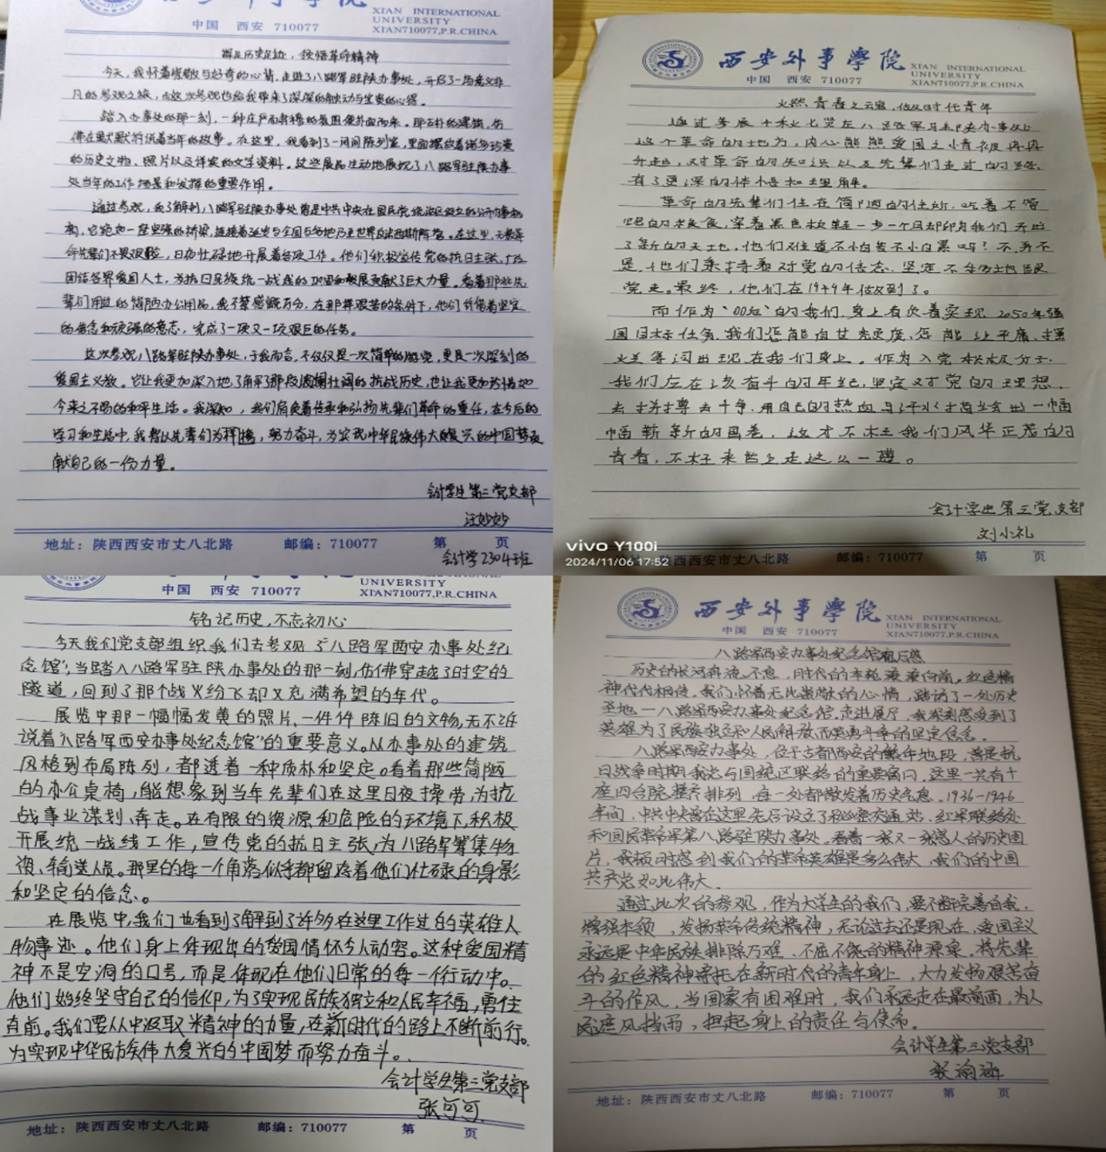 XIAN INTERNATIONAL
UNIVERSITY
中国 西安 710077 XIAN710077,P.R.CHINA
踏足历史足迹，我悟革命精神
今天，我怀着崇敬与好奇的心情，走进了八路军驻陕办事处，开启了一场意义非
凡的参观之旅，而这次参观也给我带来了深深的触动与宝贵的心得。
踏入办事处的那一刻，一种庄严而肃穆的氛围便扑面而来。那古朴的建筑，仿
佛在默默诉说着当年的故事。在这里，我看到了一间间陈列室，里面摆放着诸多珍贵
的历史文物、照片以及详实的文字资料。这些展品生动地展现了八路军驻陕办事
处当年的工作场景和发挥的重要作用。
通过参观，我了解到八路军驻陕办事处曾是中共中央在国民党统治区设立的公开办事机
构，它宛如一座坚强的桥梁，连接着延安与全国各地乃至世界反法西斯阵营。在这里，无数革
命先辈们不畏艰险，日夜忙碌地开展着各项工作。他们积极宣传党的抗日主张，广泛
团结各界爱国人士，为抗日民族统一战线的巩固和发展贡献了巨大力量。看着那些先
辈们用过的简陋办公用品，我不禁感慨万分，在那样艰苦的条件下，他们凭借着坚定
的信念和顽强的意志，完成了一项又一项艰巨的任务。
这次参观八路军驻陕办事处，于我而言，不仅仅是一次简单的游览，更是一次深刻的
爱国主义教。它让我更加深入地了解了那段波澜壮阔的抗战历史，也让我更加珍惜如
今来之不易的和平生活。我深知，我们肩负着传承和弘扬先辈们革命的重任，在今后的
学习和生活中，我将以先辈们为榜样，努力奋斗，为实现中华民族伟大复兴的中国梦贡
献自己的一份力量。
会计学生第三党支部
汪妙妙
会计学2304班
地址：陕西西安市丈八北路 邮编：710077 第 页
西安外事学院 XIAN INTERNATIONAL
UNIVERSITY
中国 西安 710077 XIAN710077,P.R.CHINA
火燃青春之云霞，做时代青年
通过参展十秋七贤庄八路军驻陕办事处
这个革命的地方，内心熊熊爱国之情衣再冉
升起，对革命的知识以及先辈们走过的路，
有了更深的体悟和理解。
革命的先辈们住在简陋的住所，吃着不管
饱的粮食，穿着黑色粗鞋一步一个脚印为我们开启
了新的天地，他们难道不怕苦不怕累吗？不，并不
是，他们秉持着对党的信念，坚定不移地跟
党走。最终，他们在1949年做到了。
而作为“00后”的我们，身上肩负着实现2050年强
国目标任务，我们怎能自甘堕废，怎能让平庸、摆
烂等词出现在我们身上。作为入党积极分子，
我们应在该奋斗的年纪，坚定对党的理想，
去拼搏去斗争，用自己的热血与汗水描绘出一幅
幅崭新的画卷，这才不枉我们风华正茂的
青春，不枉来世上走这么一遭。
会计学生第三党支部
刘小礼
vivo Y100i
2024/11/06 17:52
西安市丈八北路 邮编：710077 第 页
UNIVERSITY
中国 西安 710077 XIAN710077,P.R.CHINA
铭记历史，不忘初心
今天我们党支部组织我们去参观了“八路军西安办事处纪
念馆”，当踏入八路军驻陕办事处的那一刻，仿佛穿越了时空的
隧道，回到了那个战火纷飞却又充满希望的年代。
展览中那一幅幅发黄的照片，一件件陈旧的文物，无不诉
说着“八路军西安办事处纪念馆”的重要意义。从办事处的建筑
风格到布局陈列，都透着一种质朴和坚定。看着那些简陋
的办公桌椅，能想象到当年先辈们在这里日夜操劳，为抗
战事业谋划、奔走。在有限的资源和危险的环境下，积极
开展统一战线工作，宣传党的抗日主张，为八路军筹集物
资、输送人员。那里的每一个角落似乎都留存着他们忙碌的身影
和坚定的信念。
在展览中，我们也看到了解到了许多在这里工作过的英雄人
物事迹。他们身上体现出的爱国情怀令人动容。这种爱国精
神不是空洞的口号，而是体现在他们日常的每一个行动中。
他们始终坚守自己的信仰，为了实现民族独立和人民幸福，勇往
直前。我们要从中汲取精神的力量，在新时代的路上不断前行。
为实现中华民族伟大复兴的中国梦而努力奋斗。
会计学生第三党支部
张可可
地址：陕西西安市丈八北路 邮编：710077 第 页
西安外事学院 XIAN INTERNATIONAL
UNIVERSITY
中国 西安 710077 XIAN710077,P.R.CHINA
八路军西安办事处纪念馆有感
历史的长河奔流不息，时代的车轮滚滚向前。红色精
神代代相传。我们怀着无比崇敬的心情，踏访了一处历史
圣地——八路军西安办事处纪念馆。走进展厅，我深刻感受到了
英雄为了民族独立和人民解放而英勇斗争的坚定信念。
八路军西安办事处，位于古都西安的繁华地段，曾是抗
日战争时期我党与国统区联络的重要窗口，这里一共有十
座四合院整齐排列，每一处都散发着历史气息。1936-1946
年间，中共中央曾在这里先后设立了秘密交通站，红军联络处
和国民革命军第八路驻陕办事处，看着一张又一张感人的历史图
片，我顿时感到我们的革命英雄是多么伟大，我们的中国
共产党如此伟大。
通过此次的参观，作为大学生的我们，要不断完善自我，
增强本领，发扬革命传统精神，无论过去还是现在，爱国主义
永远是中华民族排除万难，不屈不挠的精神源泉，将先辈
的红色精神寄托在新时代的青年身上，大力发扬艰苦奋
斗的作风，当国家有困难时，我们永远走在最前面，为人
民遮风挡雨，担起身上的责任与使命。
会计学生第三党支部
地址：陕西西安市丈八北路 邮编：710077 第 页